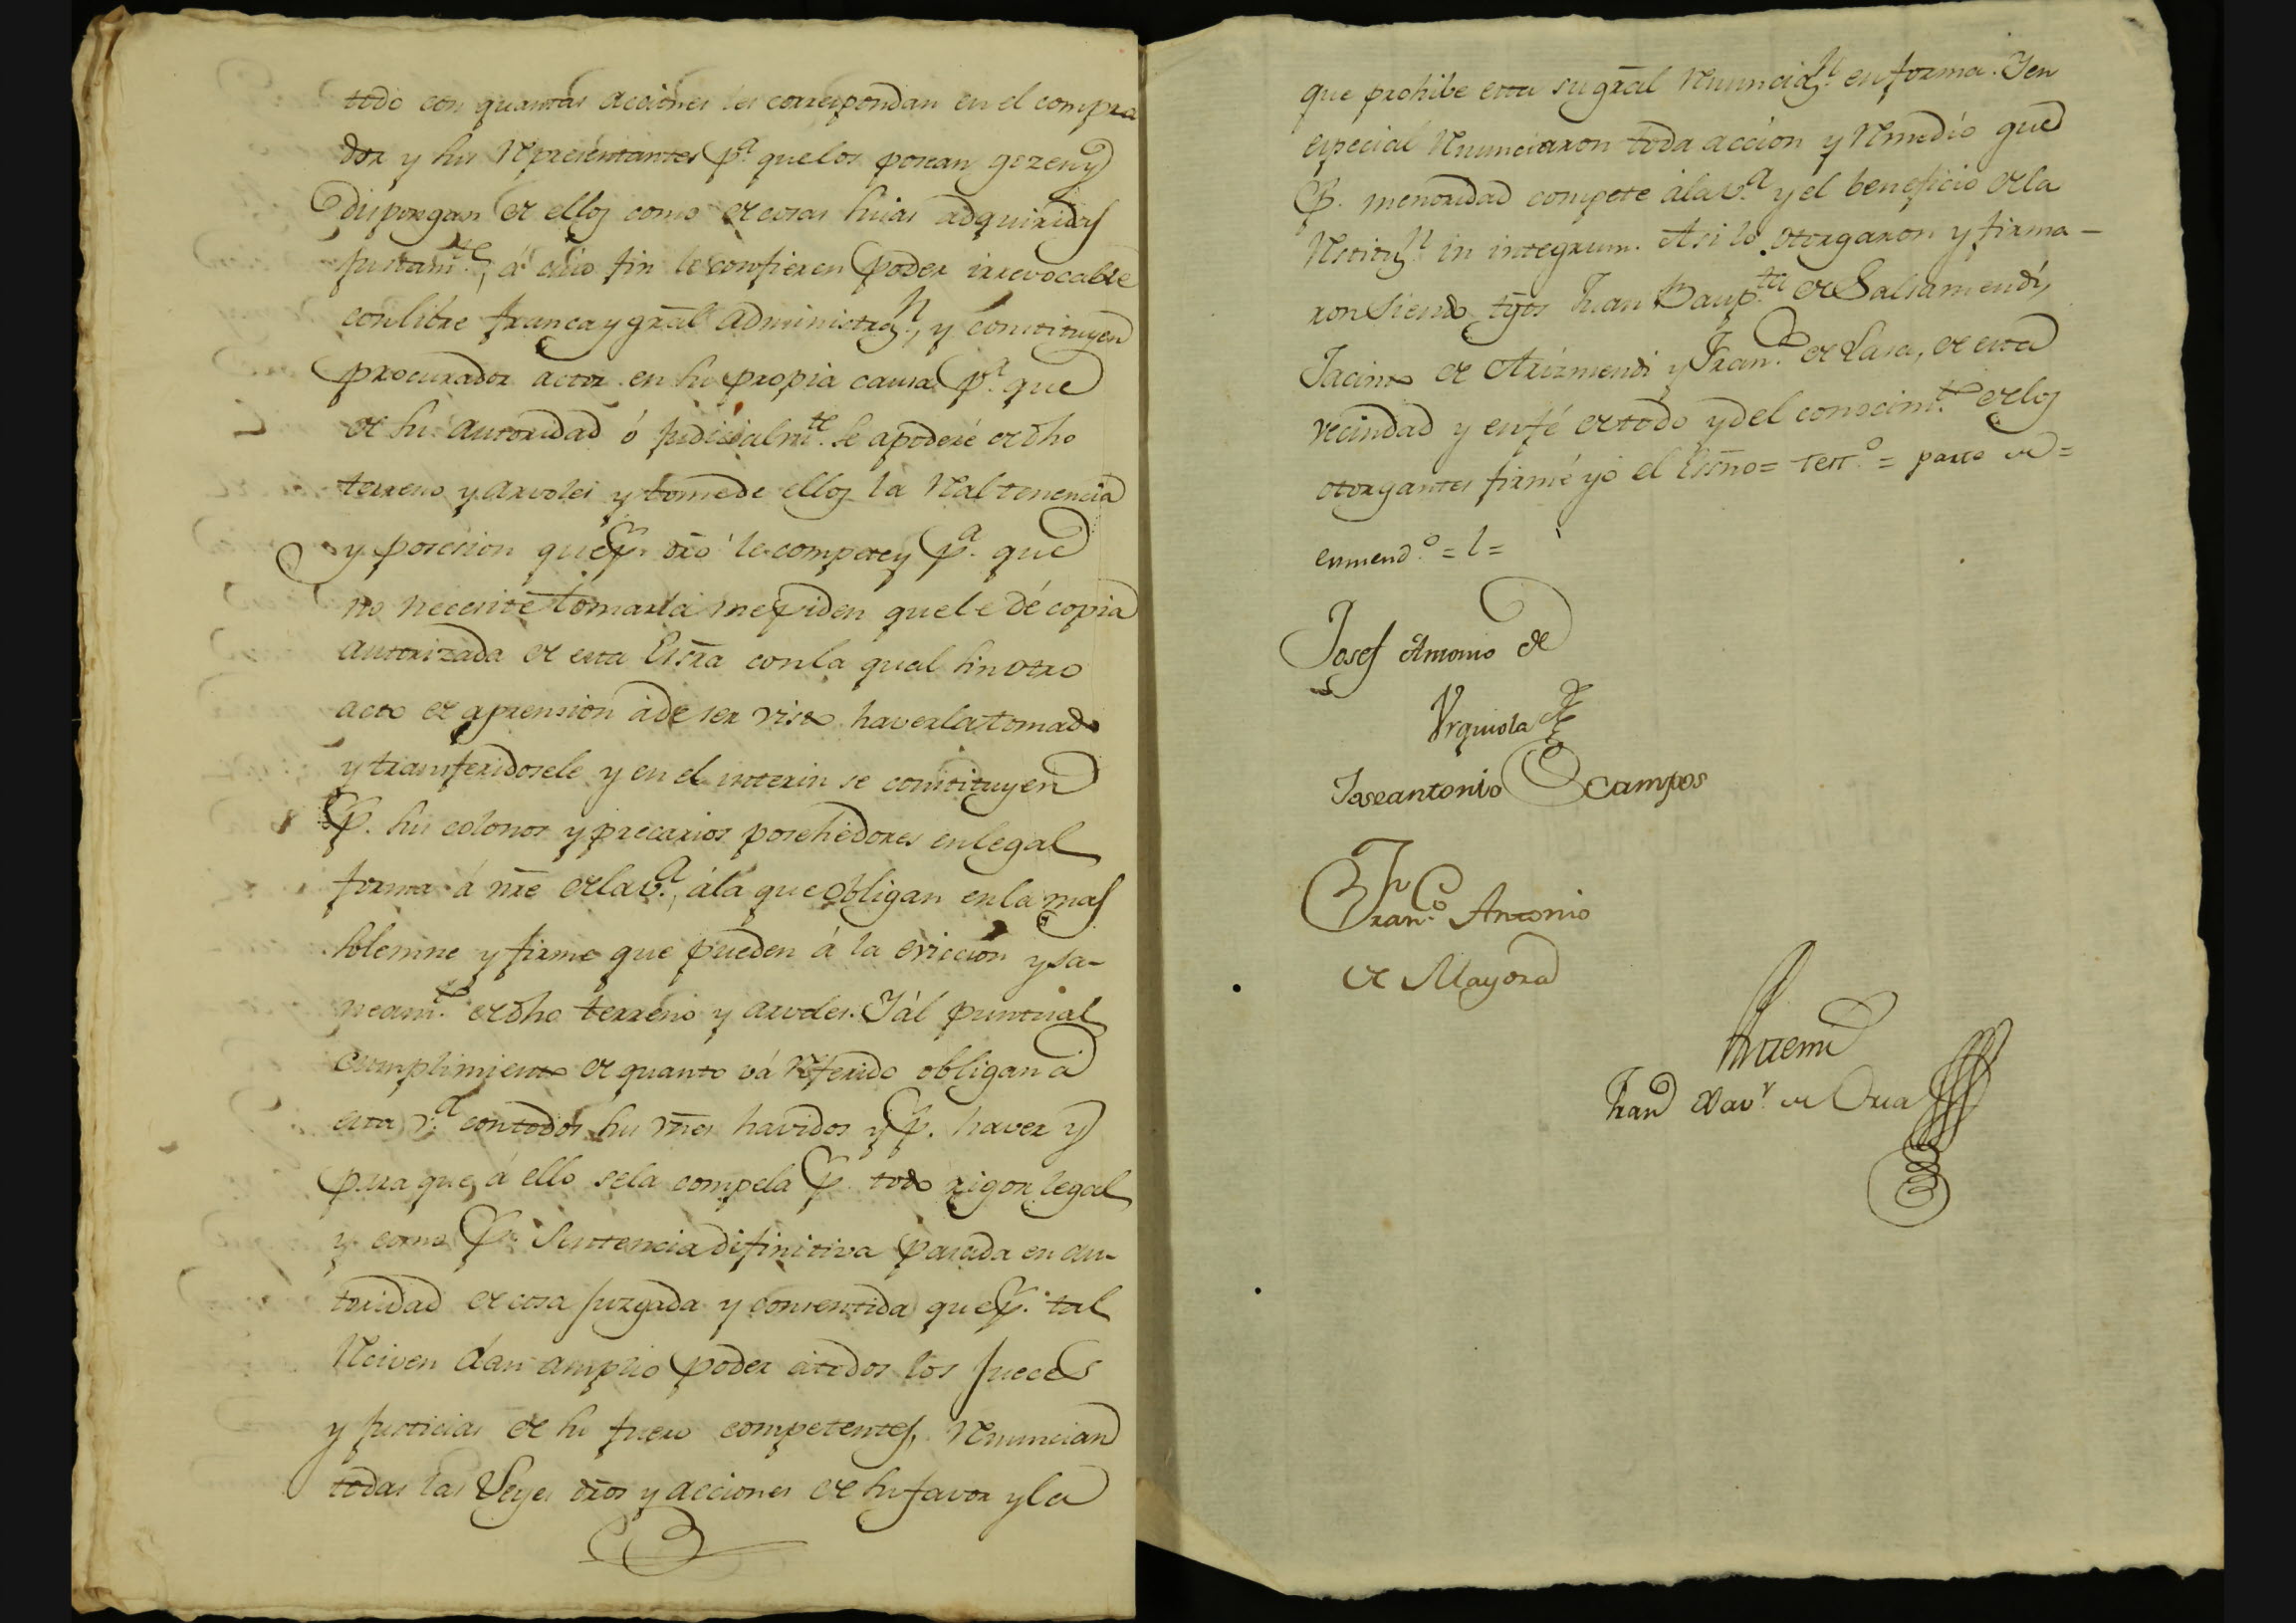 todo con quantas acciones les correspondan en el compra
dor y sus representantes p.ª que los posean gozen y
dispongan de ellos como de cosas suias adquiridas
justam.te, á cuio fin le confieren poder irrevocable
con libre franca y gral administraz.n, y constituyen
procurador actor en su propia causa p.ª que
de su autoridad ó judicialm.te se apoderé de dho
terreno y arvoles y tome de ellos la Real tenencia
y posesion que p.r dro le compete y p.ª que
no necesite tomarla me piden que le dé copia
autorizada de esta Essra con la qual sin otro
acto de aprension ade ser visto haverla tomado
y transferidosele y en el interin se constituyen
p.r sus colonos y precarios posehedores en legal
forma á nre de la v.ª, á la que obligan en la mas
solemne y firme que pueden á la eviccion y sa-
neam.to de dho terreno y arvoles. Y al puntual
cumplimiento de quanto vá referido obligan á
esta v.ª con todos sus vnes havidos y p.r haver y
para que á ello se la compela p.r todo rigor legal
y como p.r Sentencia difinitiva pasada en au-
toridad de cosa juzgada y consentida que p.r tal
reciven dán amplio poder á todos los Jueces
y Justicias de su fuero competentes, renuncian
todas las Leyes dros y acciones de su favor y la
que prohibe esta su gral renunciaz.n en forma. Y en
especial renunciaron toda accion y remedio que
p.r menoridad compete á la v.ª y el beneficio de la
restituz.n in integrum. Asi lo otorgaron y firma-
ron siendo tgos Juan Baup.ta de Salsamendi,
Jacinto de Arizmendi y Fran.co de Lasa, de esta
vecindad y en fé de todo y del conocim.to de los
otorgantes firmé yo el Essno = test.o = parte de =
enmend.o = l =
Josef Antonio de
Urquiola
Joseantonio Ocampos
Fran.co Antonio
de Mayora
Antemi
Fran Xav.r de Oria